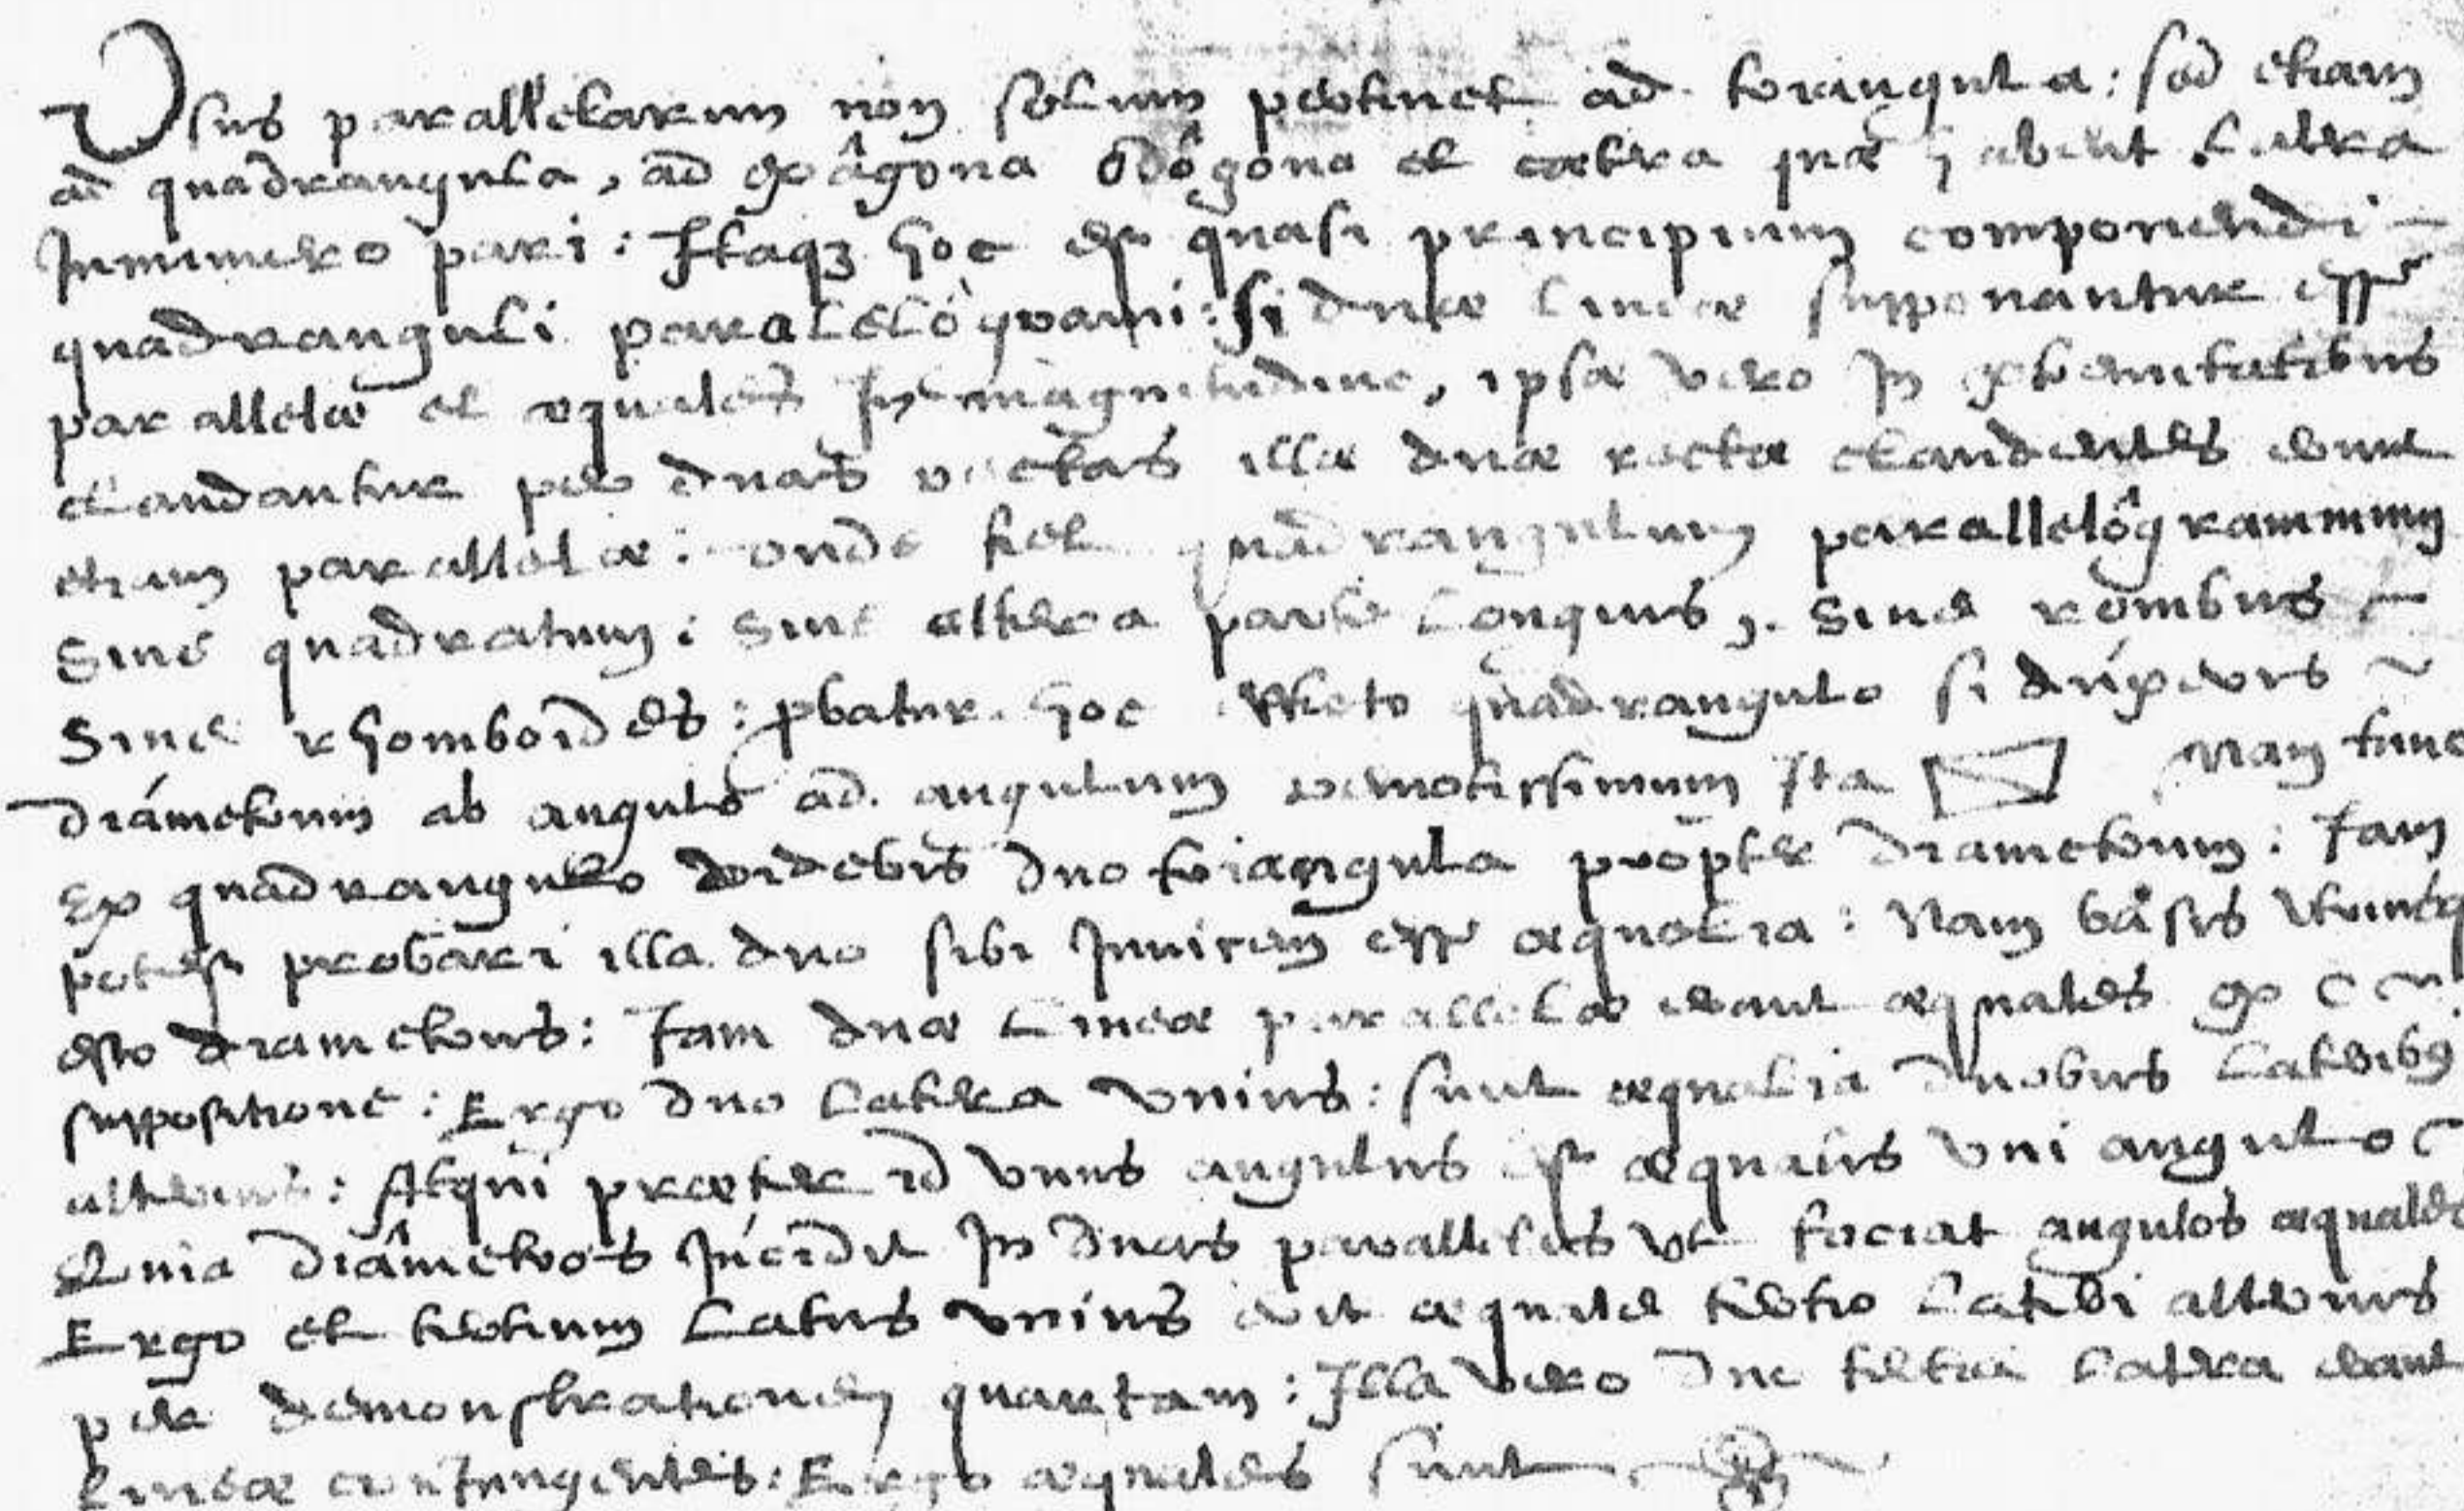 Vsus parallelarum non solum pertinet ad triangula: sed etiam
ad quadrangula, ad exâgona octôgona et cætera quæ habent Latera
In numero pari: Itaqꝫ hoc est quasi principium componendi
quadranguli paralelógrami: si duæ lineæ supponantur esse
parallelæ et equales In magnitudine, ipsæ vero In extremitatibus
claudantur per duas rectas illæ duæ rectæ claudentes erunt
etiam parallelæ: vnde fiet quadrangulum parallelôgrammum
Siue quadratum: Siue altera parte Longius, Siue rombus
Siue rhomboîdes: probatur hoc quadrangulo si dúxeris
diámetrum ab angulo ad angulum remotissimum Ita Nam tunc
Ex quadrangulo videbis duo triangula propter diametrum: Iam
potest probari illa duo sibi Inuicem esse æqualia: Nam básis vtriusq
esto diametrus: Iam duæ Lineæ parallelæ erant æquales ex
suppositione: Ergo duo Latera vnius: sunt æqualia duobus Lateribꝰ
alterius: Atqui præter id vnus angulus est æqualis vni angulo
Quia diâmetros Incidit In duas parallelas vt faciat angulos æquales
Ergo et tertium Latus vnius erit æquale tertio Lateri alterius
per demonstrationem quartam: Illa vero duo tertia Latera erant
Lineæ contungentes: Ergo æquales sunt